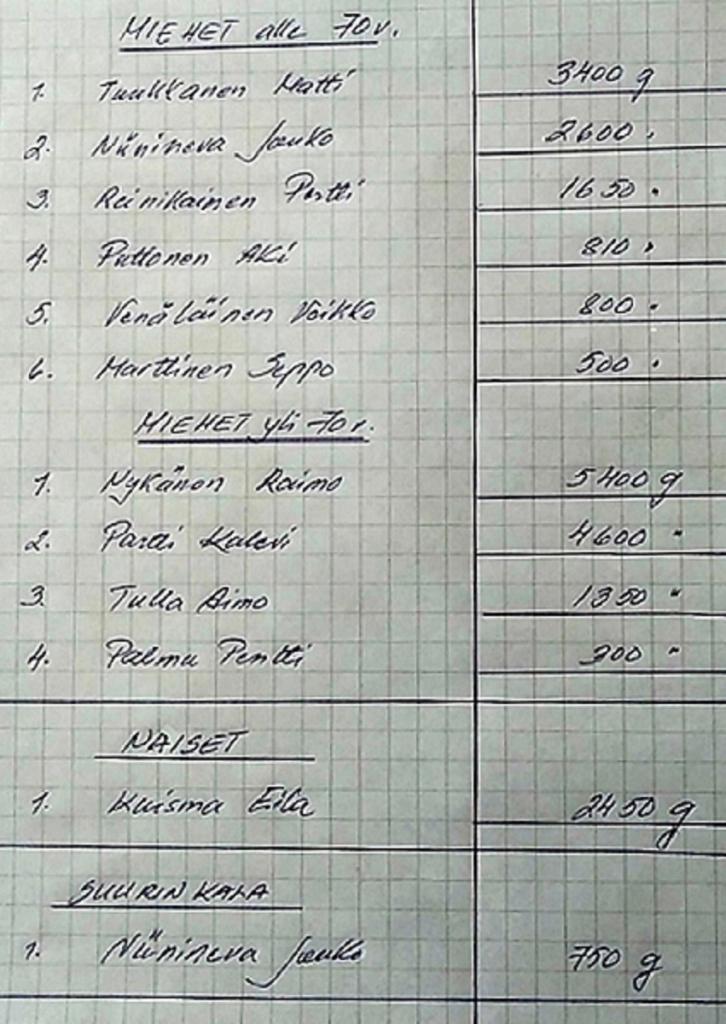 MIEHET alle 70 v.
1. Tuukkanen Matti 3400 g
2. Niinineva Jouko 2600 "
3. Reinikainen Pertti 1650 "
4. Puttonen Aki 810 "
5. Venäläinen Voikko 800 "
6. Marttinen Seppo 500 "
MIEHET yli 70 v.
1. Nykänen Raimo 5400 g
2. Parti Kalevi 4600 "
3. Tulla Aimo 1350 "
4. Palmu Pentti 300 "
NAISET
1. Kuisma Eila 2450 g
SUURIN KALA
1. Niinineva Jouko 750 g